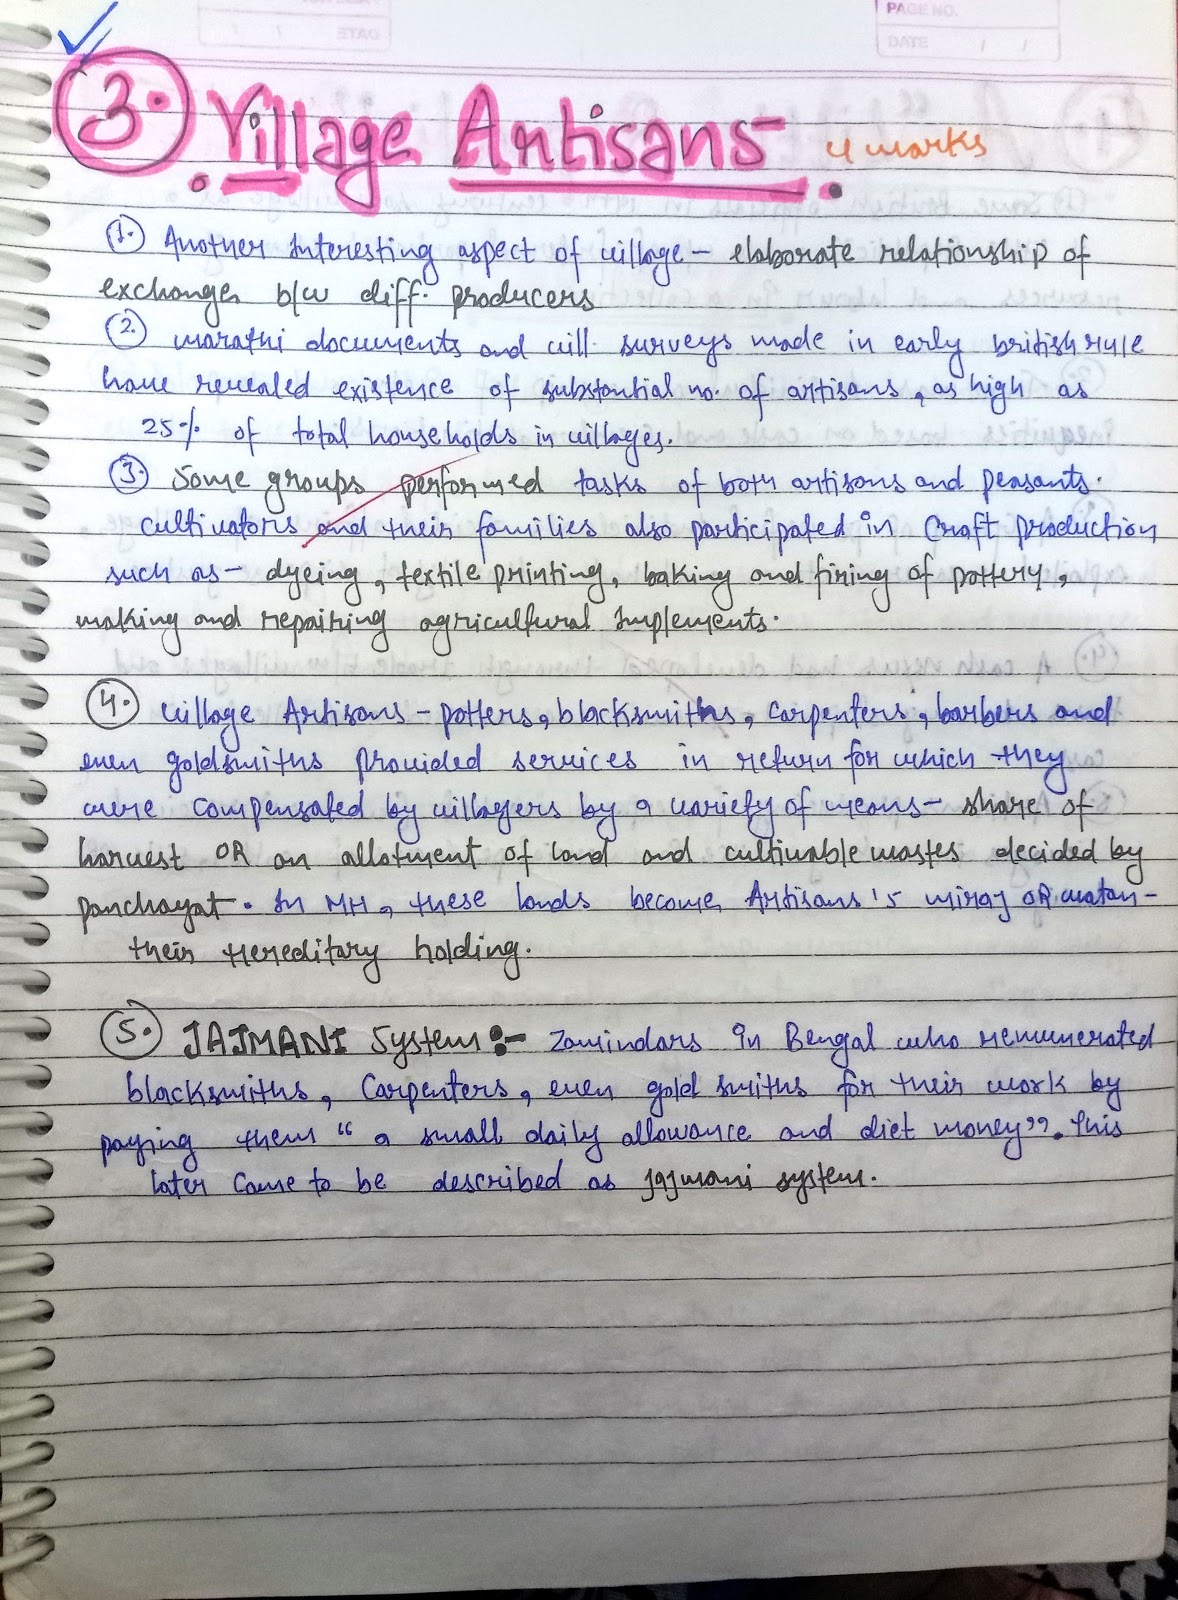 PAGE NO.
DATE / /
3. Village Artisans - 4 marks
1. Another interesting aspect of village - elaborate relationship of
exchange b/w diff. producers
2. marathi documents and vill. surveys made in early british rule
have revealed existence of substantial no. of artisans, as high as
25% of total households in villages.
3. Some groups performed tasks of both artisans and peasants.
cultivators and their families also participated in craft production
such as - dyeing, textile printing, baking and firing of pottery,
making and repairing agricultural implements.
4. village Artisans - potters, blacksmiths, carpenters, barbers and
even goldsmiths provided services in return for which they
were compensated by villagers by a variety of means - share of
harvest OR an allotment of land and cultivable wastes decided by
panchayat. In MH, these lands become Artisans's miraj OR watan -
their hereditary holding.
5. JAJMANI System :- Zamindars in Bengal who remunerated
blacksmiths, Carpenters, even gold smiths for their work by
paying them "a small daily allowance and diet money". This
later came to be described as jajmani system.